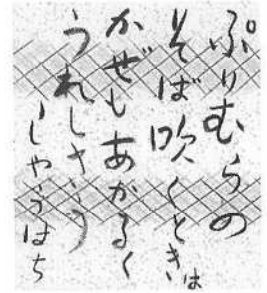 ぷりむらの
そば吹くときは
かぜもあかるく
うれしさうう
しやうはち